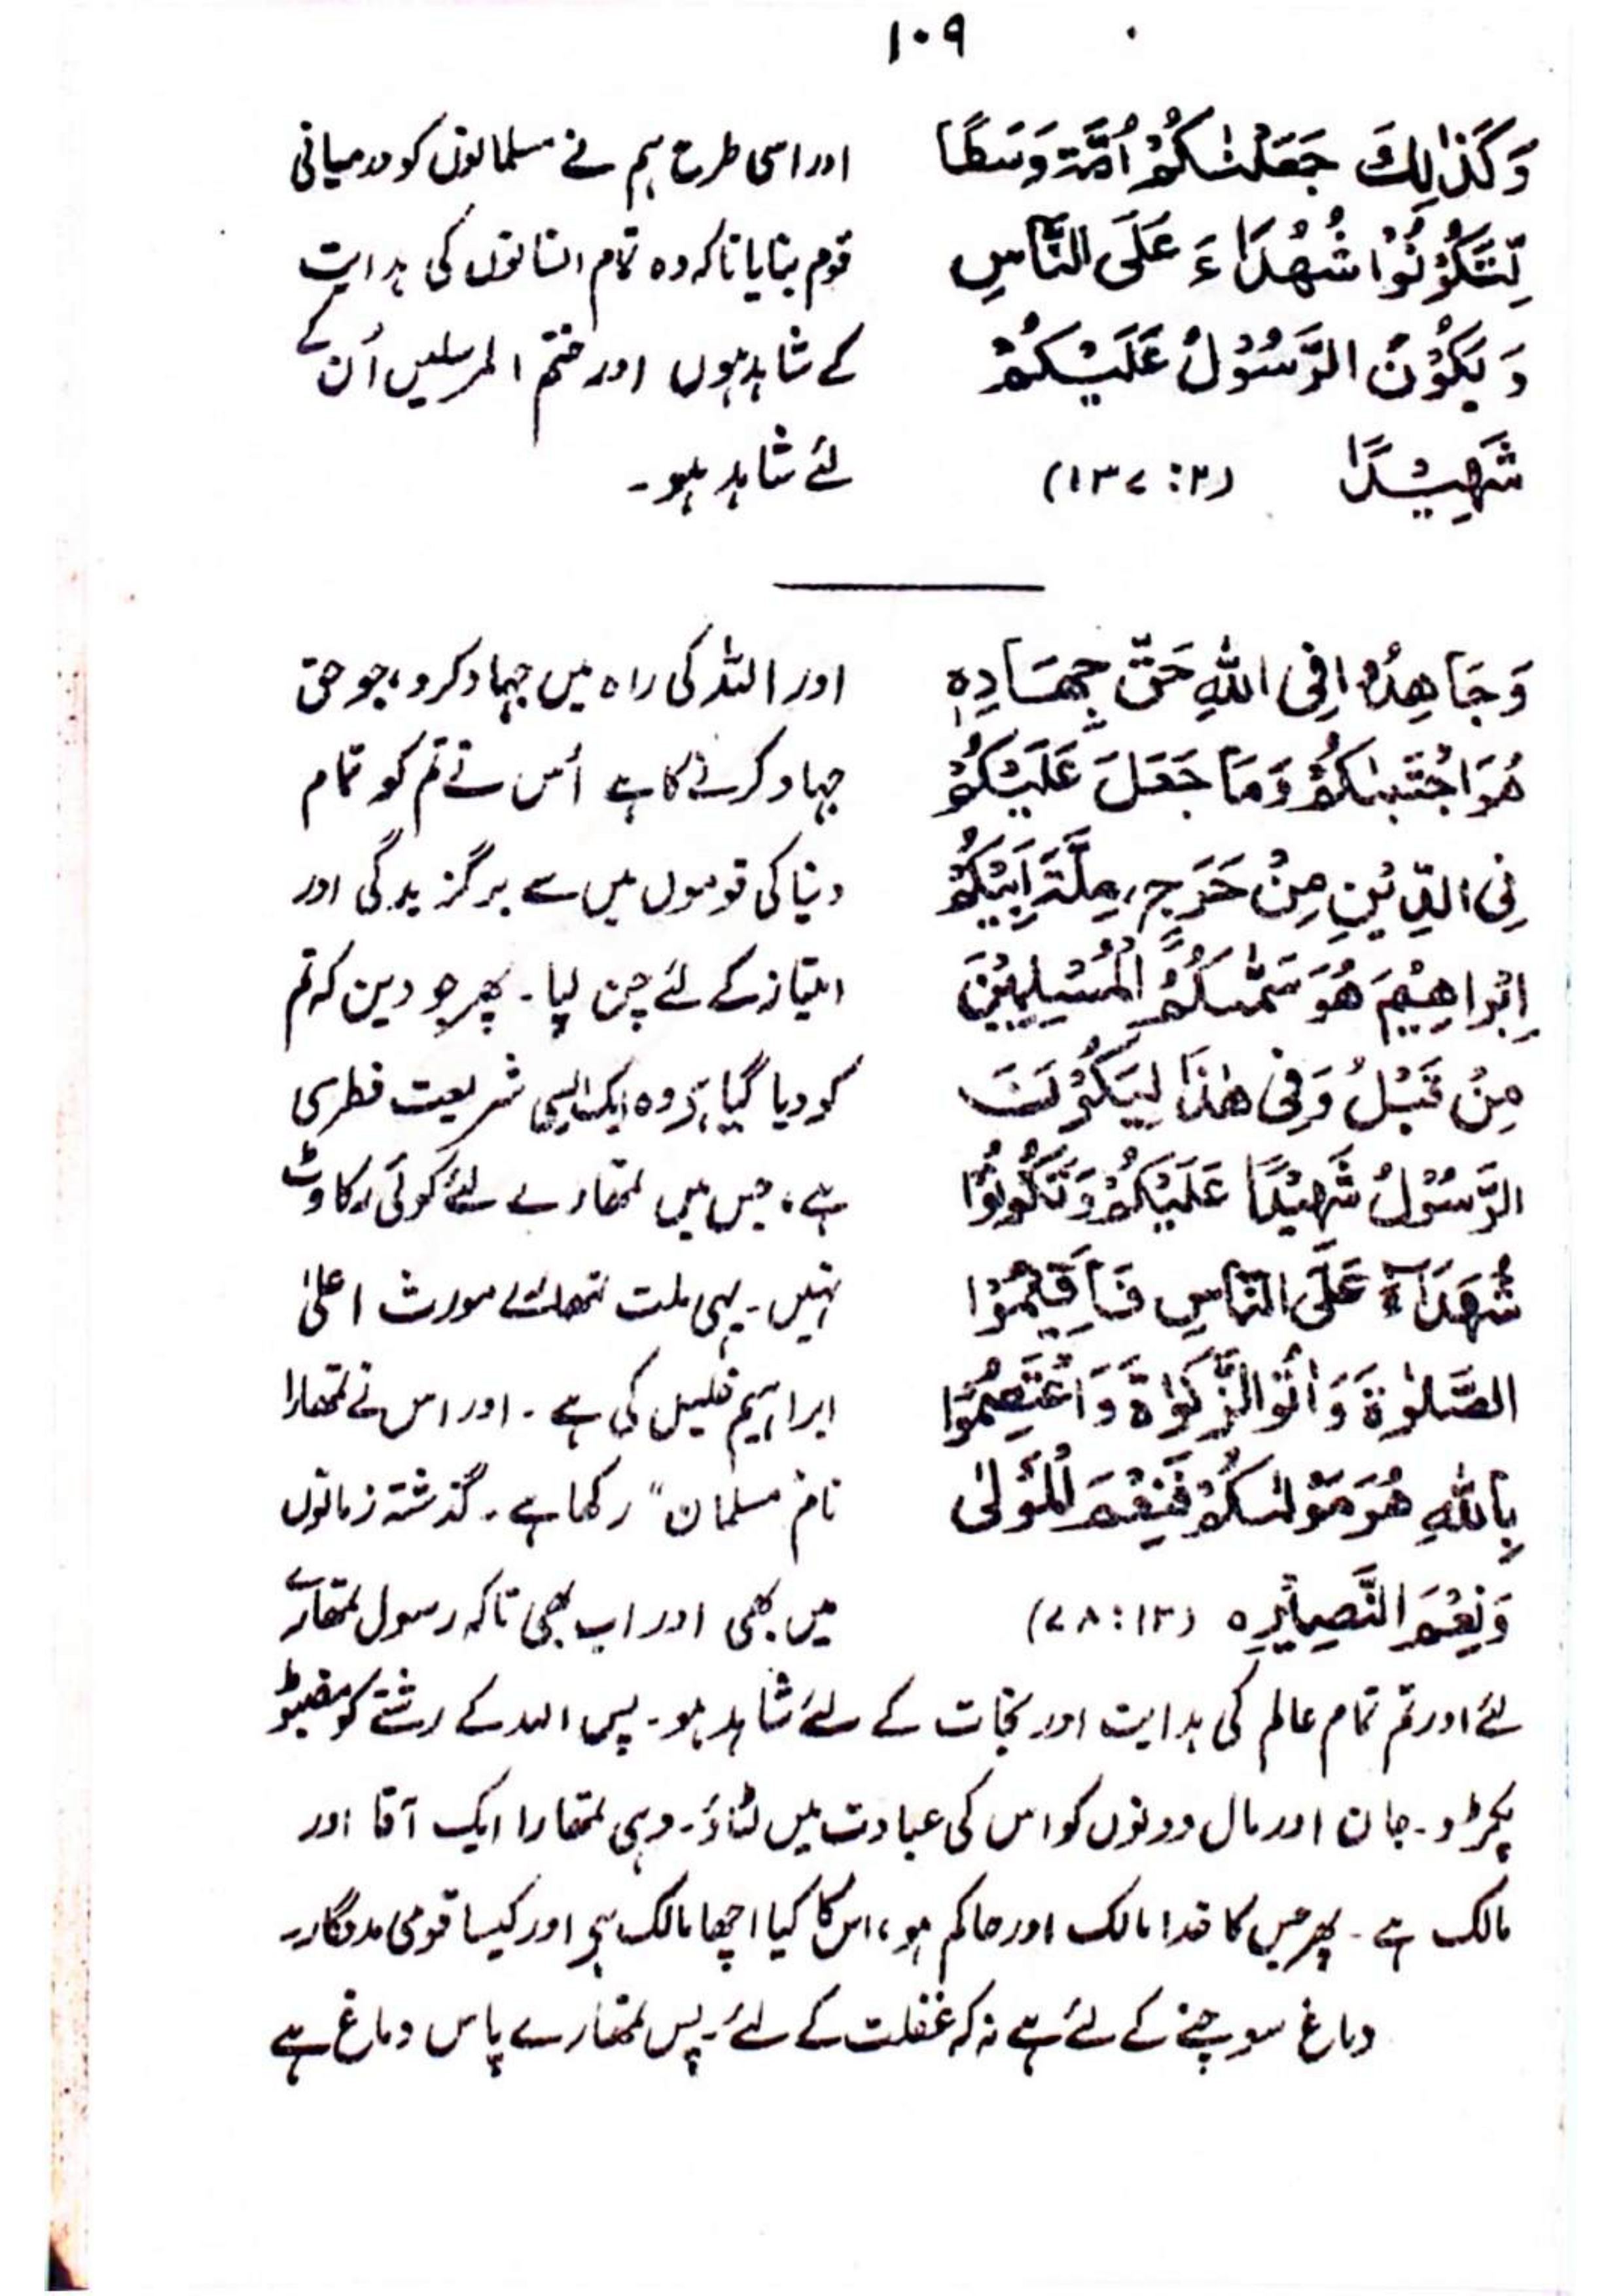 ۱۰۹
وَكَذٰلِكَ جَعَلْنٰكُمْ اُمَّةً وَسَطًا
لِّتَكُوْنُوْا شُهَدَاءَ عَلَى النَّاسِ
وَيَكُوْنَ الرَّسُوْلُ عَلَيْكُمْ
شَهِيْدًا (۱۳۷:۲)
اور اسی طرح ہم نے مسلمانوں کو درمیانی
قوم بنایا تاکہ وہ تمام انسانوں کی ہدایت
کے شاہد ہوں اور ختم المرسلیں اُن کے
لئے شاہد ہو۔
وَجَاهِدُوْا فِى اللهِ حَقَّ جِهَادِهٖ
هُوَ اجْتَبٰىكُمْ وَمَا جَعَلَ عَلَيْكُمْ
فِى الدِّيْنِ مِنْ حَرَجٍ، مِلَّةَ اَبِيْكُمْ
اِبْرَاهِيْمَ هُوَ سَمّٰىكُمُ الْمُسْلِمِيْنَ
مِنْ قَبْلُ وَفِى هٰذَا لِيَكُوْنَ
الرَّسُوْلُ شَهِيْدًا عَلَيْكُمْ وَتَكُوْنُوْا
شُهَدَآءَ عَلَى النَّاسِ فَاَقِيْمُوْا
الصَّلٰوةَ وَاٰتُوا الزَّكٰوةَ وَاعْتَصِمُوْا
بِاللهِ هُوَ مَوْلٰىكُمْ فَنِعْمَ الْمَوْلٰى
وَنِعْمَ النَّصِيْرُه (۷۸:۱۲)
اور اللہ کی راہ میں جہاد کرو، جو حق
جہاد کرنے کا ہے اُس نے تم کو تمام
دنیا کی قوموں میں سے برگزیدگی اور
امتیاز کے لئے چن لیا۔ پھر جو دین کہ تم
کو دیا گیا ہے وہ ایک ایسی شریعت فطری
ہے، جس میں تمھارے لئے کوئی رکاوٹ
نہیں۔ یہی ملت تمھارے مورث اعلیٰ
ابراہیم خلیل کی ہے۔ اور اس نے تمھارا
نام "مسلمان" رکھا ہے۔ گذشتہ زمانوں
میں بھی اور اب بھی تاکہ رسول تمھارے
لئے اور تم تمام عالم کی ہدایت اور نجات کے لئے شاہد ہو۔ پس اللہ کے رشتے کو مضبوط
پکڑو۔ جان اور مال دونوں کو اس کی عبادت میں لٹاؤ۔ وہی تمھارا ایک آقا اور
مالک ہے۔ پھر جس کا خدا مالک اور حاکم ہو، اس کا کیا اچھا مالک ہے اور کیسا قوی مددگار۔
دماغ سوچنے کے لئے ہے نہ کہ غفلت کے لئے۔ پس تمھارے پاس دماغ ہے